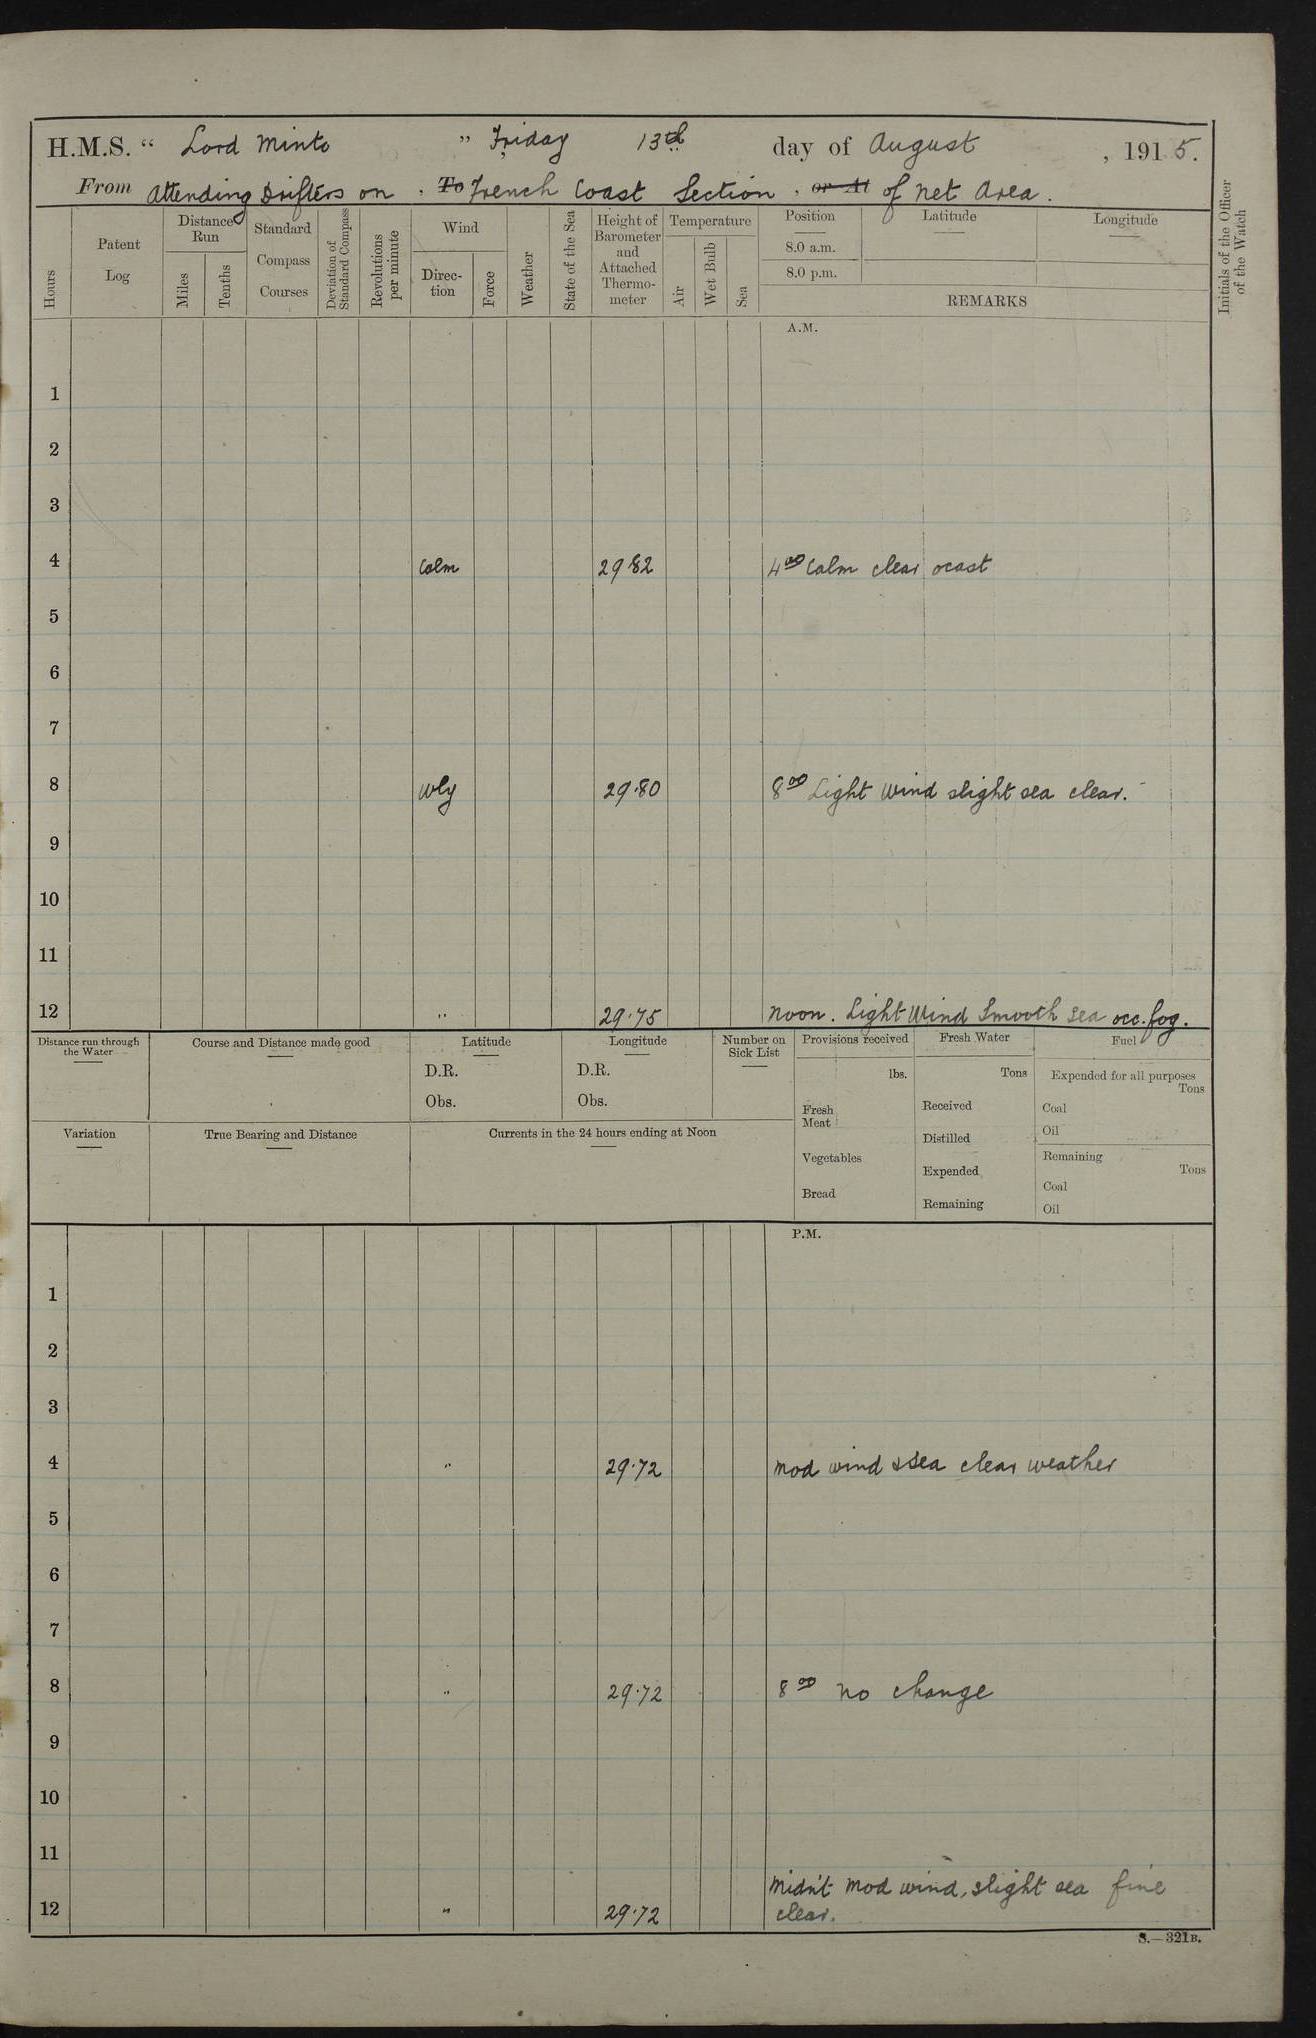 H.M.S. “ Lord Minto ” Friday 13th day of August , 1915.
From Attending Drifters on . To French Coast Section . or At of net Area.
Hours
Patent Log
Distance Run
Miles
Tenths
Standard Compass Courses
Deviation of Standard Compass
Revolutions per minute
Wind
Direc-tion
Force
Weather
State of the Sea
Height of Barometer and Attached Thermo-meter
Temperature
Air
Wet Bulb
Sea
Position Latitude Longitude
8.0 a.m.
8.0 p.m.
REMARKS
Initials of the Officer of the Watch
A.M.
1
2
3
4 Calm 29.82 4.00 Calm clear ocast
5
6
7
8 Wly 29.80 8.00 Light wind slight sea clear.
9
10
11
12 " 29.75 Noon. Light Wind Smooth Sea occ. fog.
Distance run through the Water
Course and Distance made good
Latitude
D.R.
Obs.
Longitude
D.R.
Obs.
Number on Sick List
Provisions received
lbs.
Fresh Meat
Vegetables
Bread
Fresh Water
Tons
Received
Distilled
Expended
Remaining
Fuel
Expended for all purposes
Tons
Coal
Oil
Remaining
Tons
Coal
Oil
Variation
True Bearing and Distance
Currents in the 24 hours ending at Noon
P.M.
1
2
3
4 " 29.72 Mod wind & sea clear weather
5
6
7
8 " 29.72 8.00 no change
9
10
11
Midn't mod wind, slight sea fine
12 " 29.72 clear.
S.—321B.